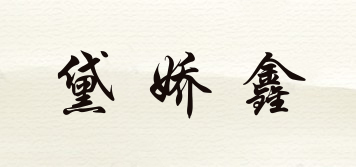 黛娇鑫